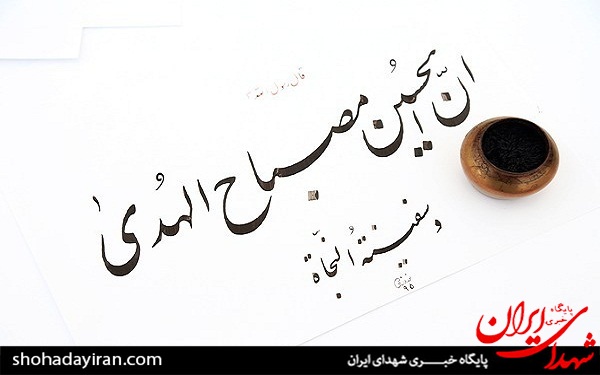 قال رسول الله
انّ الحُسین مصباح الهُدیٰ
و سفینة النجّاة
۹۵
پایگاه خبری
شهدای ایران
shohadayiran.com
پایگاه خبری شهدای ایران